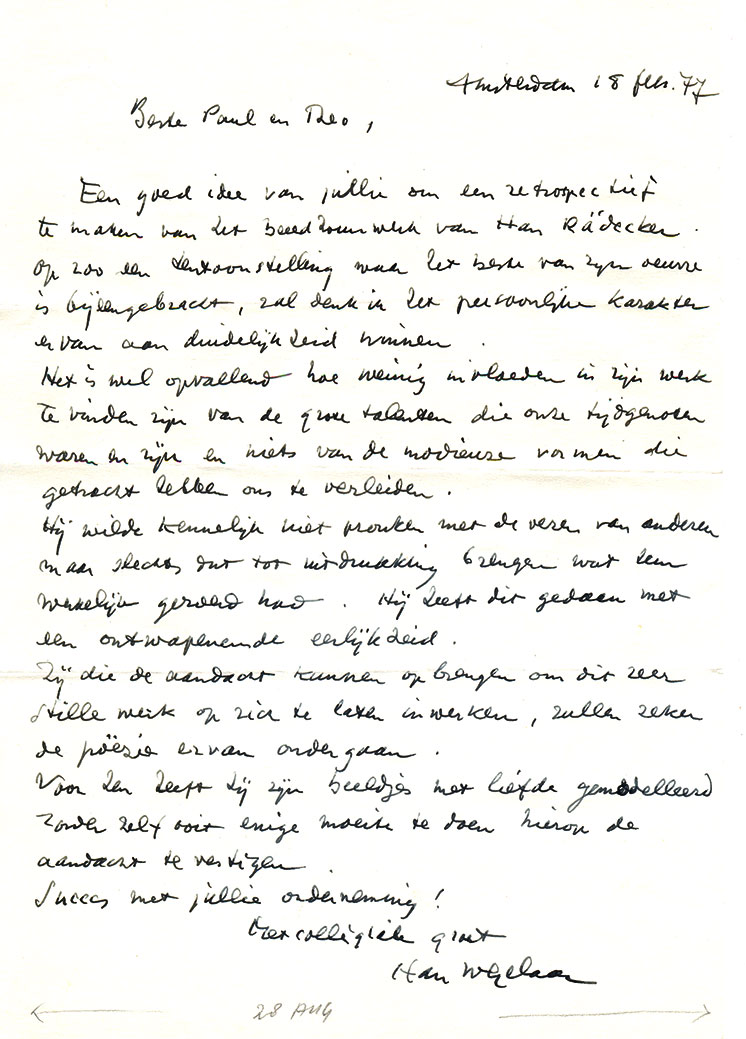 Amsterdam 18 feb. 77
Beste Paul en Theo,
Een goed idee van jullie om een retrospectief
te maken van het beeldhouwwerk van Han Rädecker.
Op zoo een tentoonstelling waar het beste van zijn oeuvre
is bijeengebracht, zal denk ik het persoonlijke karakter
ervan aan duidelijkheid winnen.
Het is wel opvallend hoe weinig invloeden in zijn werk
te vinden zijn van de grote talenten die onze tijdgenoten
waren en zijn en niets van de modieuze vormen die
getracht hebben ons te verleiden.
Hij wilde kennelijk niet pronken met de veren van anderen
maar slechts dat tot uitdrukking brengen wat hem
werkelijk geroerd had. Hij heeft dit gedaan met
een ontwapenende eerlijkheid.
Zij die de aandacht kunnen opbrengen om dit zeer
stille werk op zich te laten inwerken, zullen zeker
de poëzie ervan ondergaan.
Voor hen heeft hij zijn beeldjes met liefde gemodelleerd
zonder zelf ooit enige moeite te doen hierop de
aandacht te vestigen.
Succes met jullie onderneming!
Met collegiale groet
Han Wezelaar
28 AUG